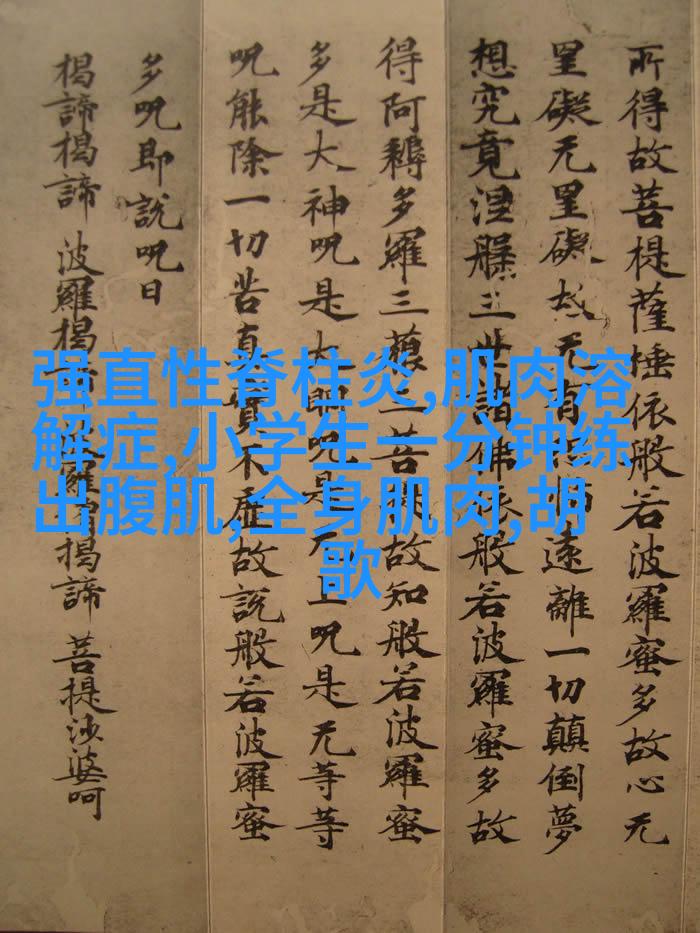 所得故菩提薩埵依般若波羅蜜多故心无
罣礙无罣礙故无有恐怖遠離一切顛倒夢
想究竟涅槃三世諸佛依般若波羅蜜多故
得阿耨多羅三藐三菩提故知般若波羅蜜
多是大神呪是大明呪是无上呪是无等等
呪能除一切苦真實不虛故說般若波羅蜜
多呪即說呪曰
揭諦揭諦 波羅揭諦 波羅僧揭諦 菩提沙婆呵
强直性脊柱炎,肌肉溶
解症,小学生一分钟练
出腹肌,全身肌肉,胡
歌